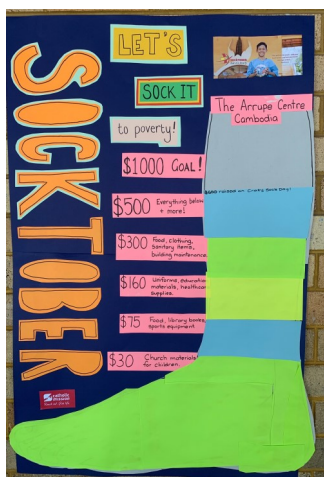 SOCKTOBER
LET'S
SOCK IT
to poverty!
The Arrupe Centre
Cambodia
$1000 GOAL!
$500 Everything below
+ more!
$300 Food, clothing,
sanitary items,
building maintenance
$160 Uniforms, education
materials, healthcare
supplies.
$75 Food, library books,
sports equipment
$30 Church materials
for children.
catholic
mission